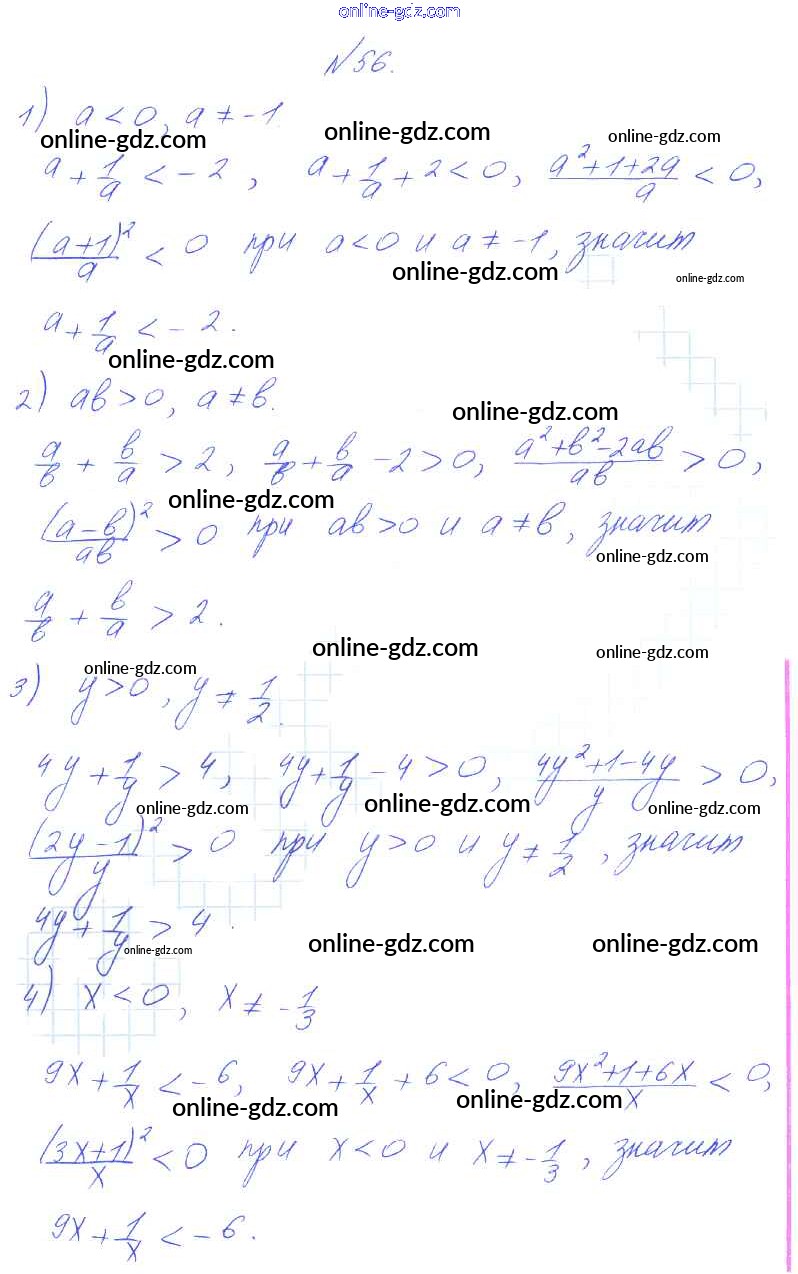 online-gdz.com
№56.
1) a<0, a≠-1.
online-gdz.com online-gdz.com online-gdz.com
a+1/a<-2, a+1/a+2<0, (a²+1+2a)/a<0,
(a+1)²/a<0 при a<0 и a≠-1, значит
online-gdz.com online-gdz.com
a+1/a<-2.
online-gdz.com
2) ab>0, a≠b.
online-gdz.com
a/b+b/a>2, a/b+b/a-2>0, (a²+b²-2ab)/ab>0,
online-gdz.com
(a-b)²/ab>0 при ab>0 и a≠b, значит
online-gdz.com
a/b+b/a>2.
online-gdz.com online-gdz.com
online-gdz.com
3) y>0, y≠1/2.
4y+1/y>4, 4y+1/y-4>0, (4y²+1-4y)/y>0,
online-gdz.com online-gdz.com online-gdz.com
(2y-1)²/y>0 при y>0 и y≠1/2, значит
4y+1/y>4.
online-gdz.com online-gdz.com online-gdz.com
4) x<0, x≠-1/3
9x+1/x<-6, 9x+1/x+6<0, (9x²+1+6x)/x<0,
online-gdz.com online-gdz.com
(3x+1)²/x<0 при x<0 и x≠-1/3, значит
9x+1/x<-6.